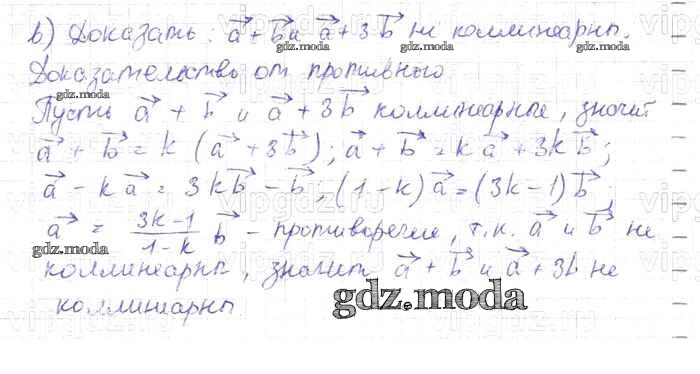 в) Доказать: a⃗ + b⃗ и a⃗ + 3b⃗ не коллинеарны.
gdz.moda gdz.moda gdz.moda
Доказательство от противного.
gdz.moda
Пусть a⃗ + b⃗ и a⃗ + 3b⃗ коллинеарные, значит
a⃗ + b⃗ = k (a⃗ + 3b⃗); a⃗ + b⃗ = ka⃗ + 3kb⃗;
gdz.moda gdz.moda gdz.moda
a⃗ - ka⃗ = 3kb⃗ - b⃗, (1-k)a⃗ = (3k-1)b⃗
a⃗ = (3k-1)/(1-k) b⃗ - противоречие, т.к. a⃗ и b⃗ не
gdz.moda gdz.moda
коллинеарны, значит a⃗ + b⃗ и a⃗ + 3b не
коллинеарны
gdz.moda
vipgdz.ru